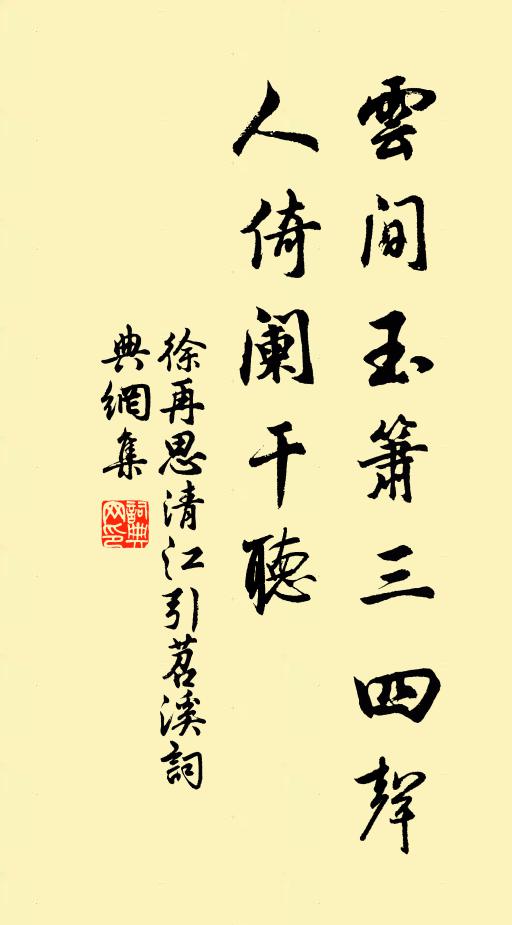 雲間玉簫三四聲
人倚阑干聽
徐再思清江引苕溪詞
典網集
詞典
网印